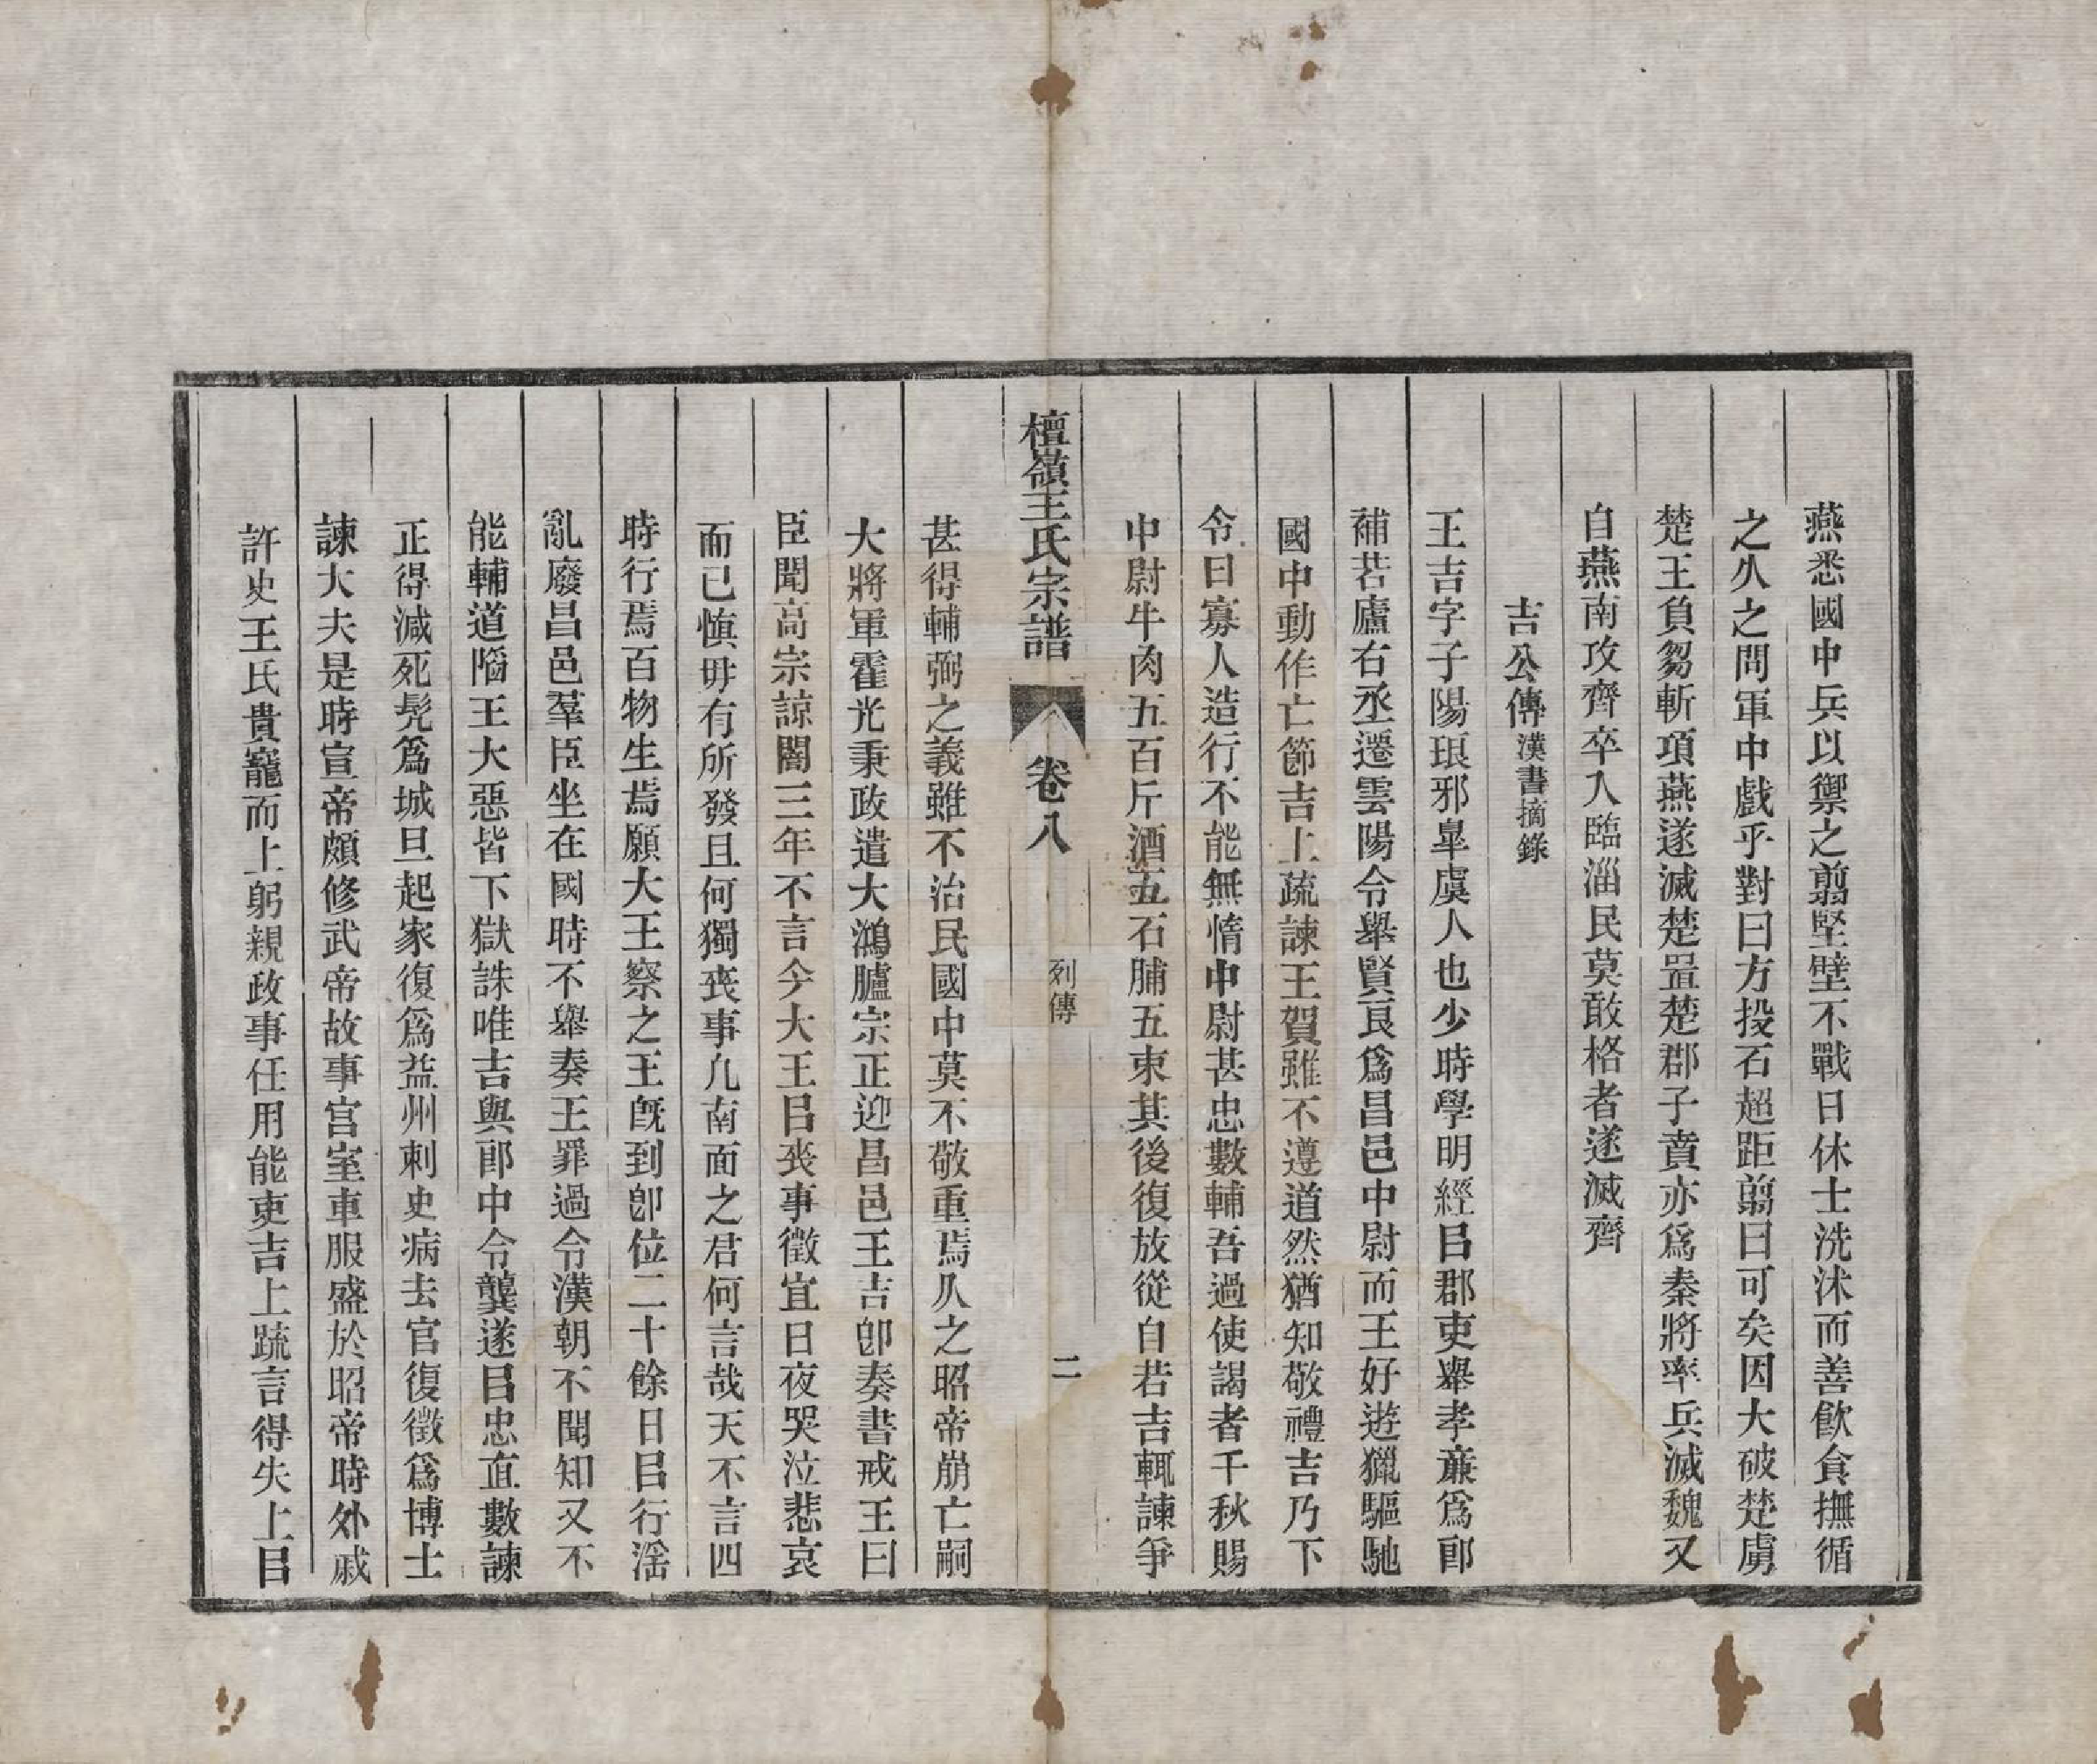 燕悉國中兵以禦之翦堅壁不戰日休士洗沐而善飲食撫循
之久之問軍中戲乎對曰方投石超距翦曰可矣因大破楚虜
楚王負芻斬項燕遂滅楚置楚郡子賁亦爲秦將率兵滅魏又
自燕南攻齊卒入臨淄民莫敢格者遂滅齊
吉公傳漢書摘錄
王吉字子陽琅邪皐虞人也少時學明經㠯郡吏舉孝廉爲郎
補若廬右丞遷雲陽令舉賢良爲昌邑中尉而王好遊獵驅馳
國中動作亡節吉上疏諫王賀雖不遵道然猶知敬禮吉乃下
令曰寡人造行不能無惰中尉甚忠數輔吾過使謁者千秋賜
中尉牛肉五百斤酒五石脯五束其後復放從自若吉輒諫爭
檀嶺王氏宗譜 卷八 列傳 二
甚得輔弼之義雖不治民國中莫不敬重焉久之昭帝崩亡嗣
大將軍霍光秉政遣大鴻臚宗正迎昌邑王吉卽奏書戒王曰
臣聞高宗諒闇三年不言今大王㠯喪事徵宜日夜哭泣悲哀
而已愼毋有所發且何獨喪事凡南面之君何言哉天不言四
時行焉百物生焉願大王察之王旣到卽位二十餘日㠯行淫
亂廢昌邑羣臣坐在國時不舉奏王罪過令漢朝不聞知又不
能輔道陷王大惡皆下獄誅唯吉與郎中令龔遂㠯忠直數諫
正得減死髡爲城旦起家復爲益州刺史病去官復徵爲博士
諫大夫是時宣帝頗修武帝故事宫室車服盛於昭帝時外戚
許史王氏貴寵而上躬親政事任用能吏吉上疏言得失上㠯